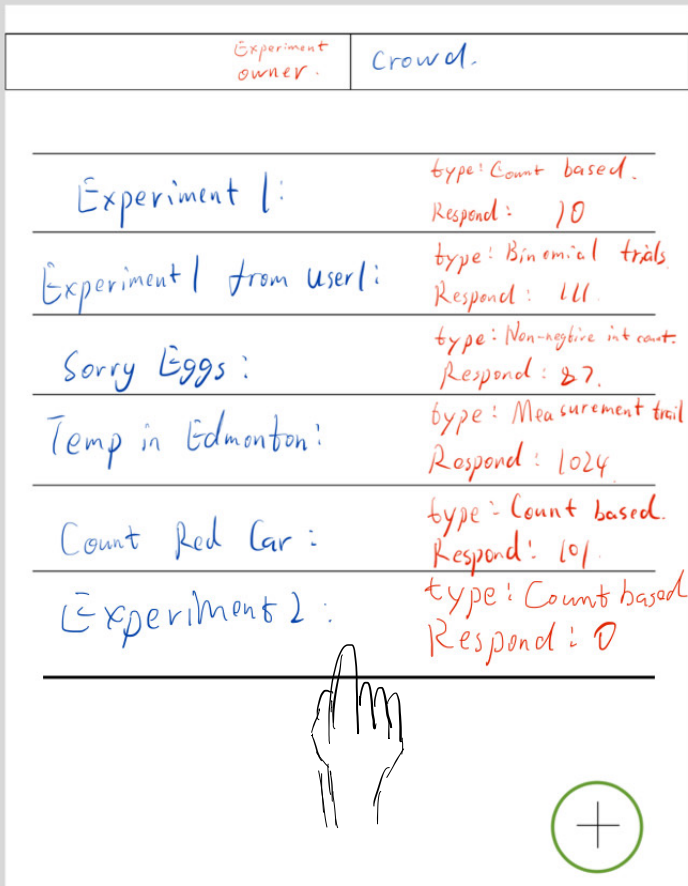 Experiment
owner.
Crowd.
Experiment 1:
type: Count based.
Respond: 10
Experiment 1 from user1:
type: Binomial trials
Respond: 111.
Sorry Eggs:
type: Non-negtive int count.
Respond: 87.
Temp in Edmonton:
type: Measurement trail
Respond: 1024
Count Red Car:
type: Count based.
Respond: 101.
Experiment 2:
type: Count based
Respond: 0
+